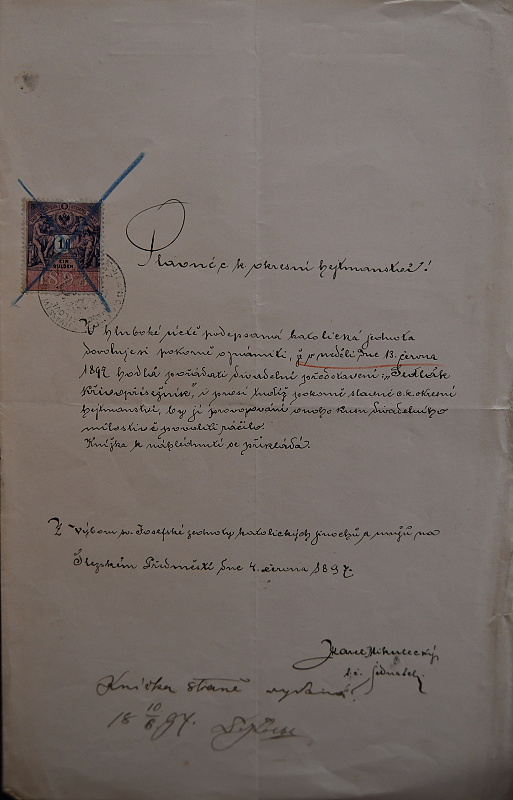 1
EIN
GULDEN
Slavné c. k. okresní hejtmanství!
V hluboké úctě podepsaná katolická jednota
dovoluje si pokorně oznámiti, že v neděli dne 13. června
1897 hodlá pořádati divadelní představení: „Sedlák
Křivopřísežník“, i prosí tudíž pokorně slavné c. k. okresní
hejtmanství, by jí provozování onoho kusu divadelního
milostivě povoliti ráčilo.
Knížka k náhlédnutí se přikládá.
Z výboru sv. Josefské jednoty katolických jinochů a mužů na
Slezském Předměstí dne 4. června 1897.
Mikulecký,
t. č. jednatel.
Knížka straně vydána
18 10/6 97.